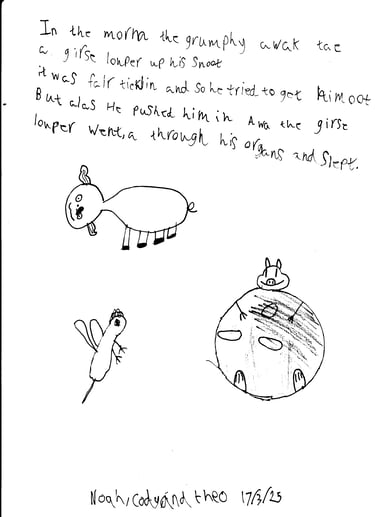 In the morna the grumphy awak tae
a girse louper up his snoot
it was fair ticklin and so he tried to get Him oot
But alas He pushed him in Awa the girse
louper went, a through his organs and slept.
Noah, cody and theo 17/3/25